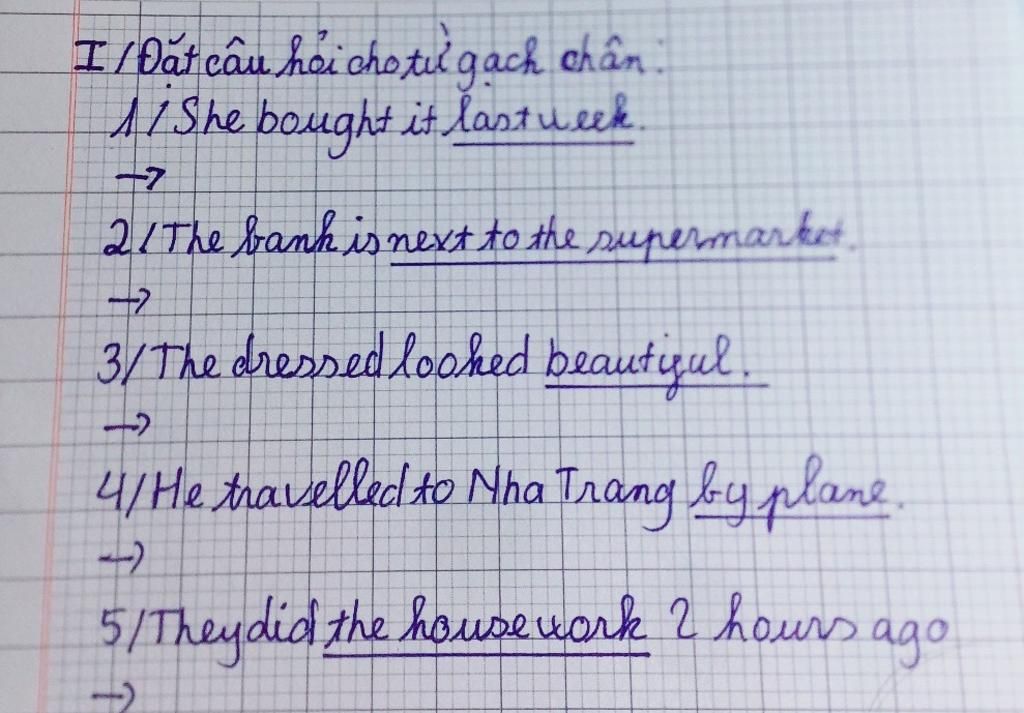 I/Đặt câu hỏi cho từ gạch chân:
1/She bought it last week.
→
2/The bank is next to the supermarket.
→
3/The dressed looked beautiful.
→
4/He travelled to Nha Trang by plane.
→
5/They did the housework 2 hours ago
→